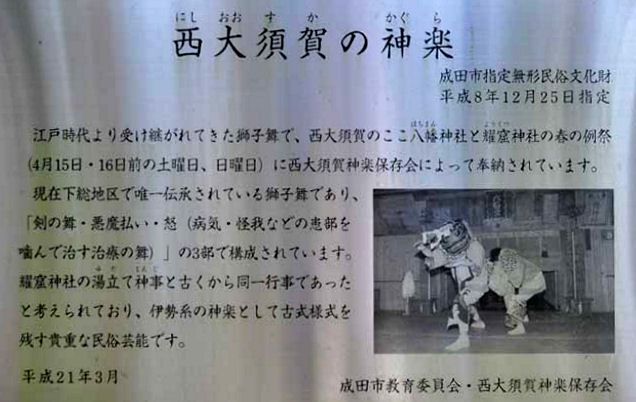 にし おお す か かぐ ら
西大須賀の神楽
成田市指定無形民俗文化財
平成8年12月25日指定
はちまん ようくつ
江戸時代より受け継がれてきた獅子舞で、西大須賀のここ八幡神社と耀窟神社の春の例祭
(4月15日・16日前の土曜日、日曜日)に西大須賀神楽保存会によって奉納されています。
現在下総地区で唯一伝承されている獅子舞であり、
「剣の舞・悪魔払い・怒(病気・怪我などの患部を
噛んで治す治療の舞)」の3部で構成されています。
ゆ だ しんじ
耀窟神社の湯立て神事と古くから同一行事であった
と考えられており、伊勢系の神楽として古式様式を
残す貴重な民俗芸能です。
平成21年3月
成田市教育委員会・西大須賀神楽保存会